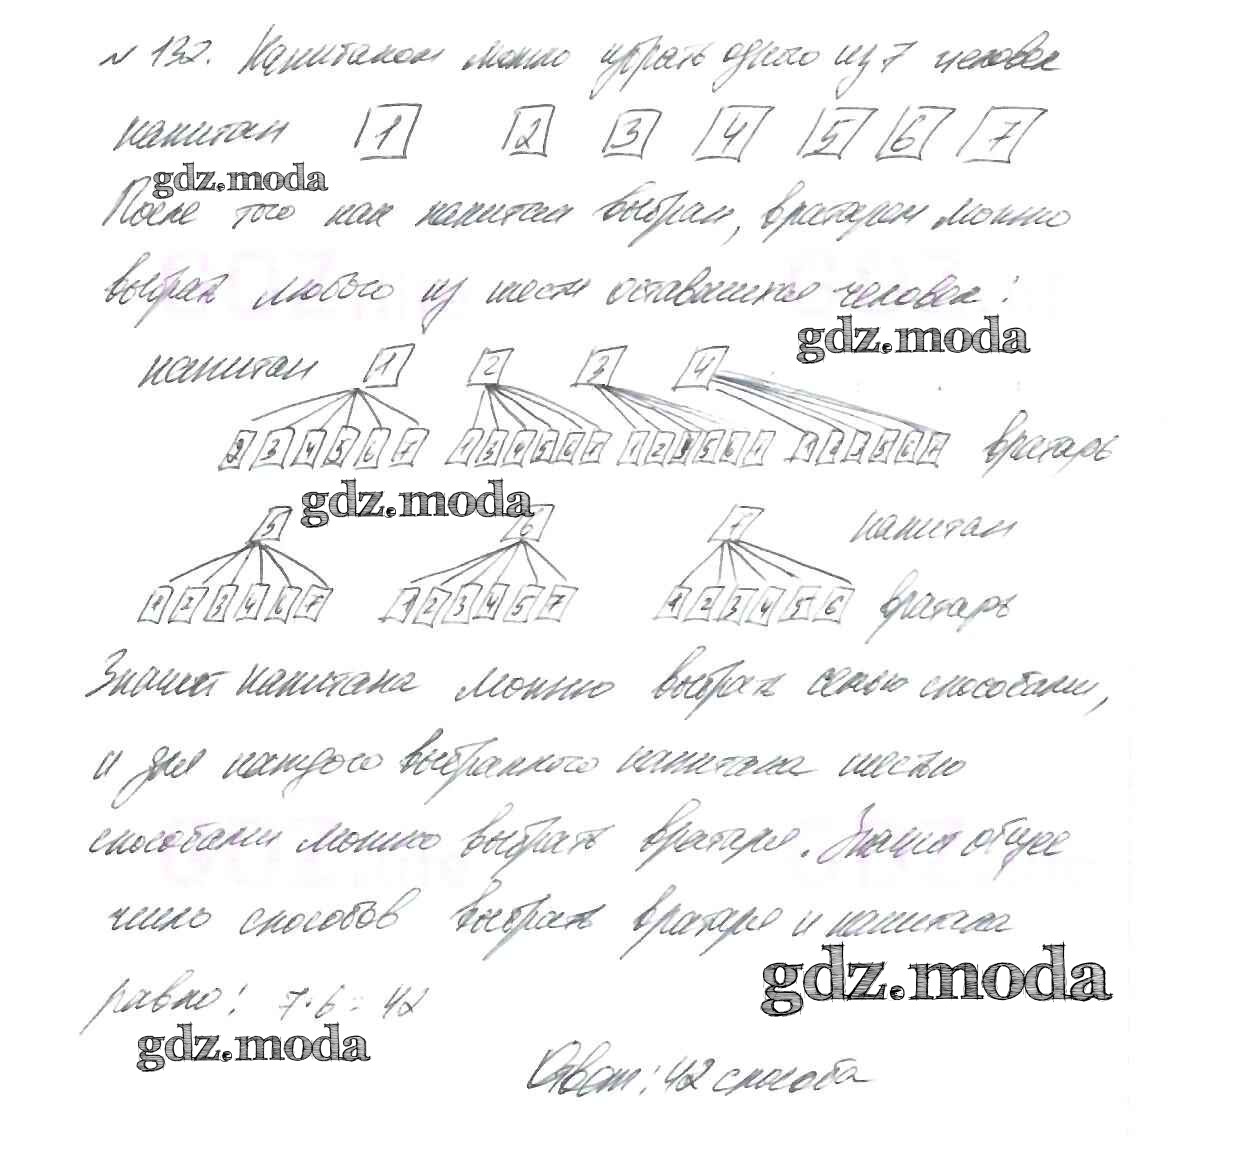 № 132. Капитаном можно убрать одного из 7 человек
капитан 1 2 3 4 5 6 7
gdz.moda
После того как капитан выбран, вратарем можно
выбрать любого из шести оставшихся человек:
gdz.moda
капитан 1 2 3 4
2 3 4 5 6 7 1 3 4 5 6 7 1 2 4 5 6 7 1 2 3 5 6 7 вратарь
gdz.moda
5 6 7 капитан
1 2 3 4 6 7 1 2 3 4 5 7 1 2 3 4 5 6 вратарь
Значит капитана можно выбрать семью способами,
и для каждого выбранного капитана шестью
способами можно выбрать вратаря. Значит общее
число способов выбрать вратаря и капитана
равно: 7·6=42
gdz.moda
gdz.moda
Ответ: 42 способа